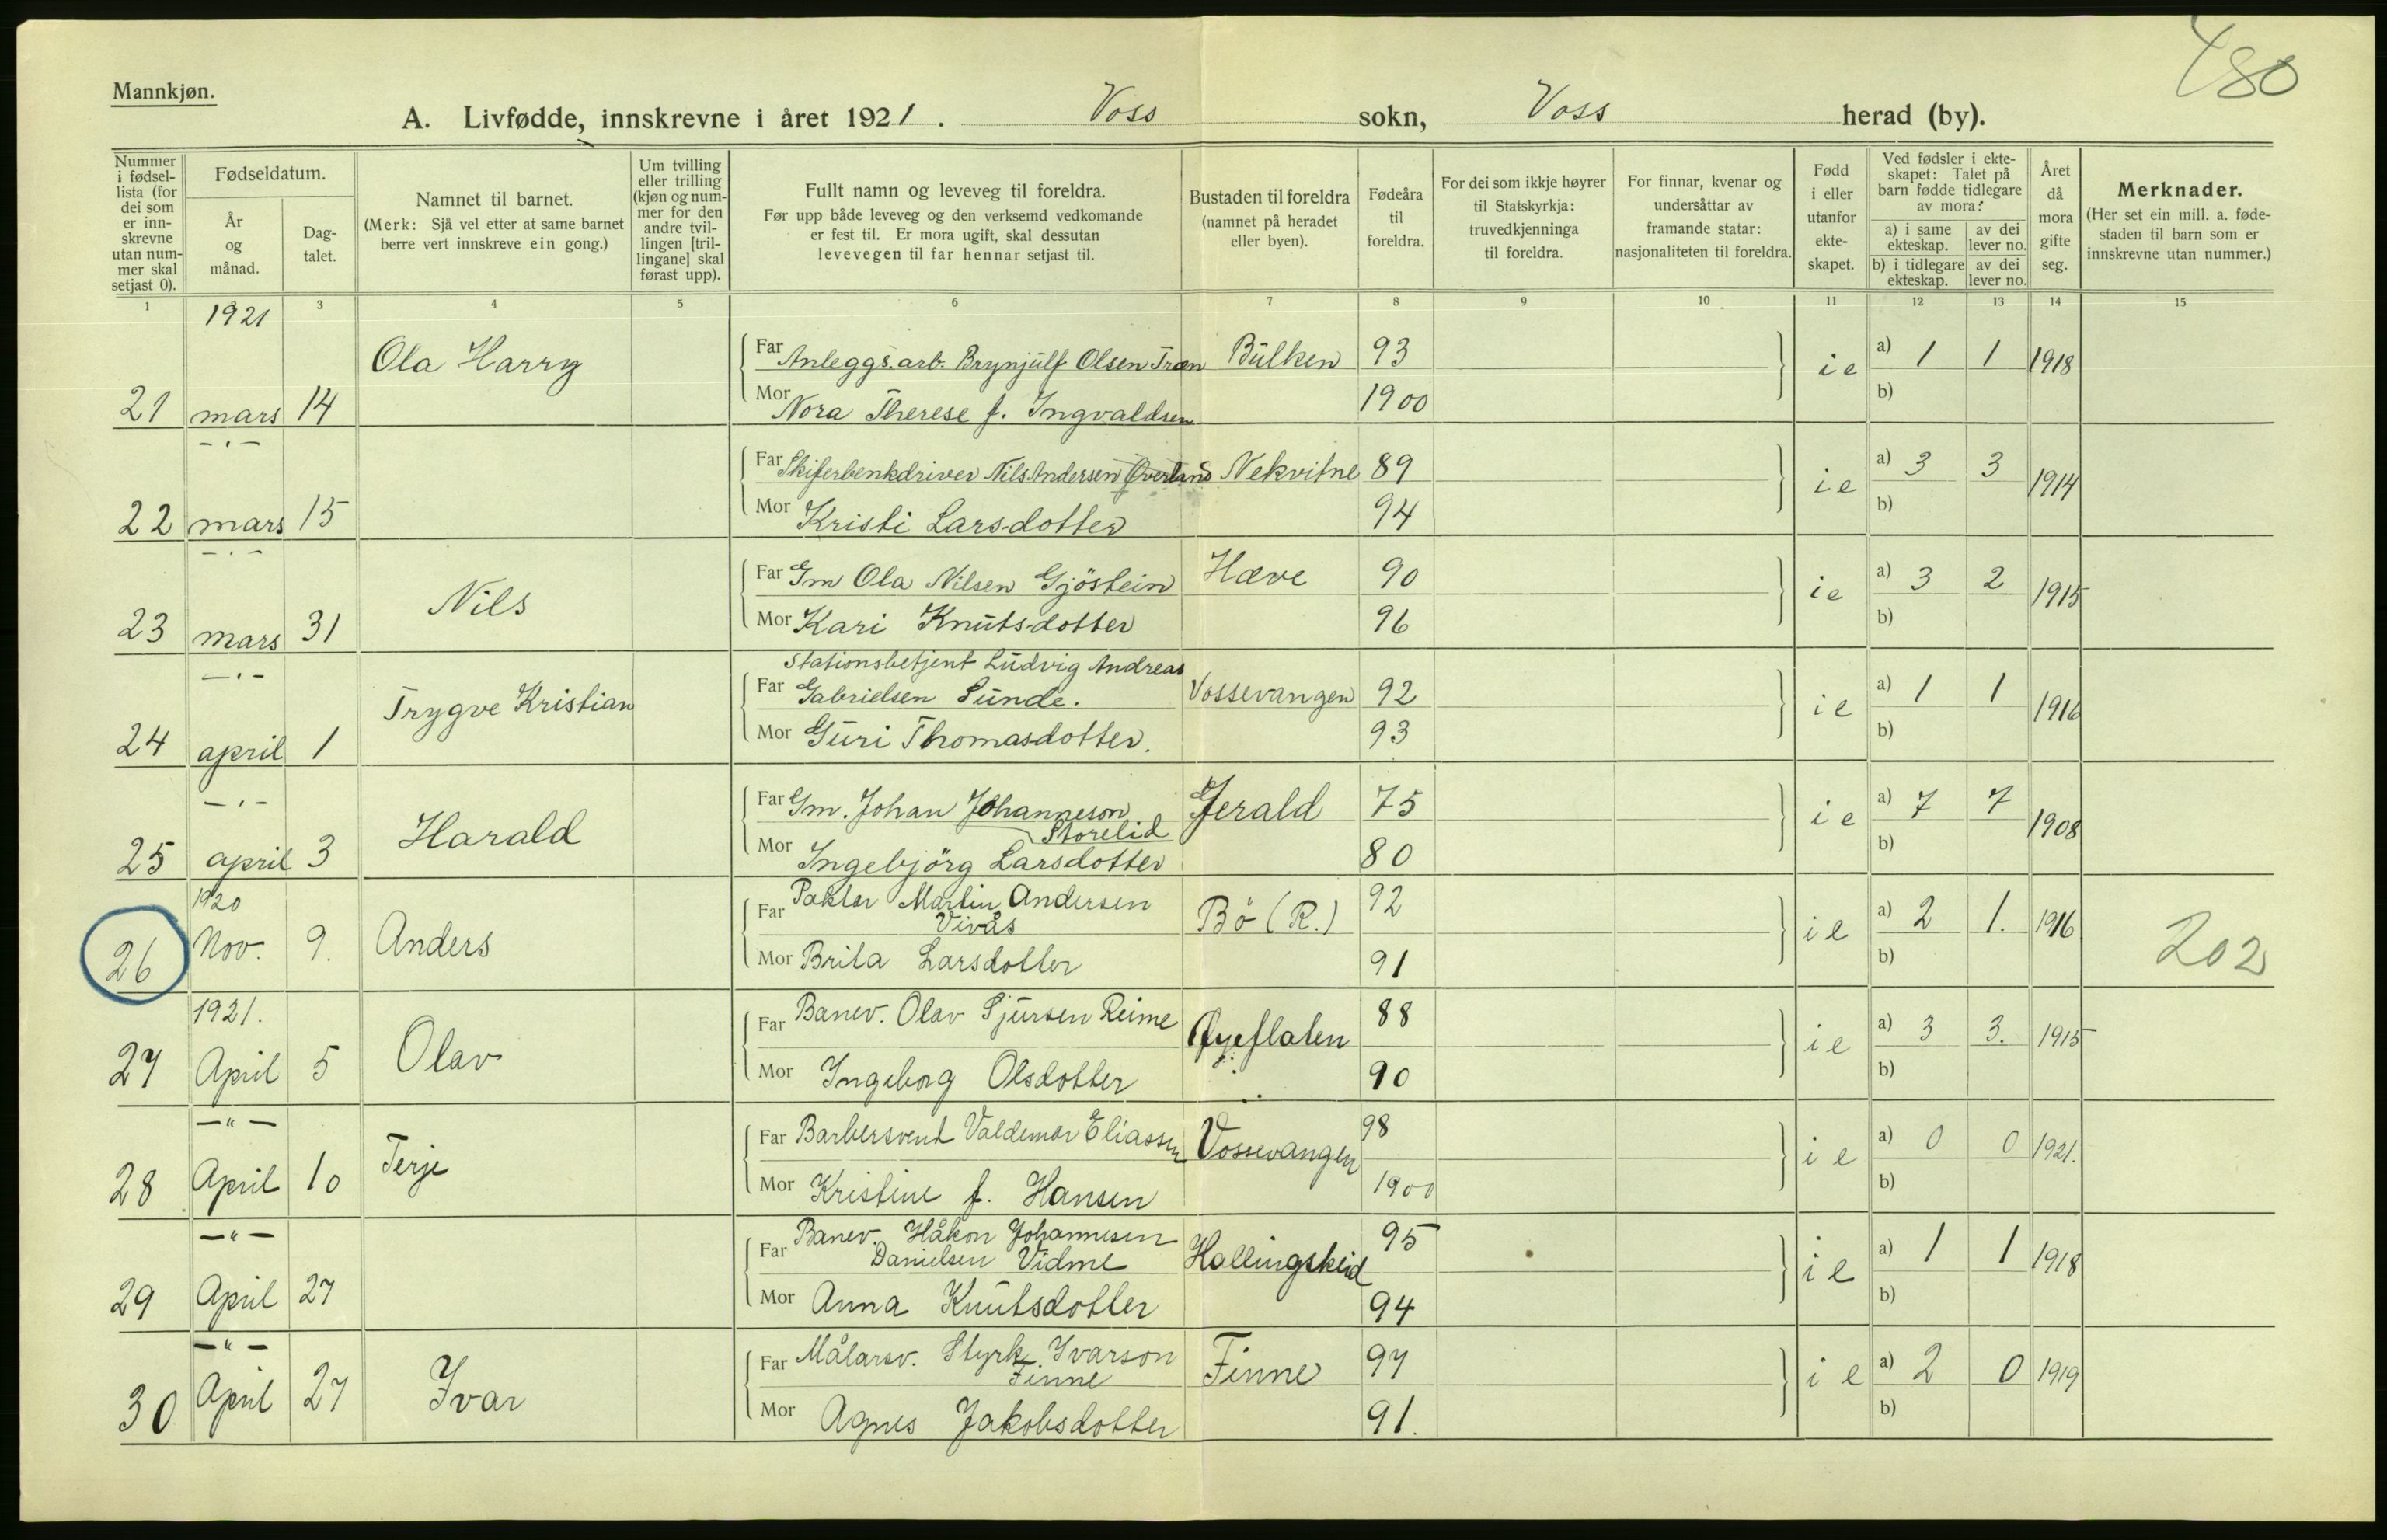 480
Mannkjøn.
A. Livfødde, innskrevne i året 1921. Voss sokn, Voss herad (by).
Nummer i fødsel-lista (for dei som er inn-skrevne utan num-mer skal setjast 0).
Fødseldatum.
År og månad.
Dag-talet.
Namnet til barnet.
(Merk: Sjå vel etter at same barnet berre vert innskreve ein gong.)
Um tvilling eller trilling (kjøn og num-mer for den andre tvil-lingen [tril-lingane] skal førast upp).
Fullt namn og leveveg til foreldra.
Før upp både leveveg og den verksemd vedkomande er fest til. Er mora ugift, skal dessutan levevegen til far hennar setjast til.
Bustaden til foreldra (namnet på heradet eller byen).
Fødeåra til foreldra.
For dei som ikkje høyrer til Statskyrkja: truvedkjenninga til foreldra.
For finnar, kvenar og undersåttar av framande statar: nasjonaliteten til foreldra.
Fødd i eller utanfor ekte-skapet.
Ved fødsler i ekte-skapet: Talet på barn fødde tidlegare av mora:
a) i same ekteskap. av dei lever no.
b) i tidlegare ekteskap. av dei lever no.
Året då mora gifte seg.
Merknader.
(Her set ein mill. a. føde-staden til barn som er innskrevne utan nummer.)
1 3 4 5 6 7 8 9 10 11 12 13 14 15
1921
21 mars 14 Ola Harry Far Anleggs.arb. Brynjulf Olsen Træn Bulken 93 i e a) 1 1 1918
Mor Nora Therese f. Ingvaldsen 1900 b)
— . —
22 mars 15 Far Skiferbenkdriver Nils Andersen Øverland Nekvitne 89 i e a) 3 3 1914
Mor Kristi Larsdotter 94 b)
— . —
23 mars 31 Nils Far Gm Ola Nilsen Gjöstein Hæve 90 i e a) 3 2 1915
Mor Kari Knutsdotter 96 b)
— . —
24 april 1 Trygve Kristian Stationsbetjent Ludvig Andreas
Far Gabrielsen Sunde. Vossevangen 92 i e a) 1 1 1916
Mor Guri Thomasdotter. 93 b)
— . —
25 april 3 Harald Far Gm. Johan Johanneson Storelid Gjerald 75 i e a) 7 7 1908
Mor Ingebjörg Larsdotter 80 b)
1920
26 Nov. 9. Anders Far Paktar Martin Andersen Vivås Bö (R.) 92 i e a) 2 1. 1916 202
Mor Brita Larsdotter 91 b)
1921.
27 April 5 Olav Far Banev. Olav Sjursen Reime Øyeflaten 88 i e a) 3 3. 1915
Mor Ingeborg Olsdotter 90 b)
— " —
28 April 10 Terje Far Barbersvend Valdemar Eliassen Vossevangen 98 i e a) 0 0 1921.
Mor Kristine f. Hansen 1900 b)
— " —
29 April 27 Far Banev. Håkon Johannesen Danielsen Vidme Hallingskeid 95 i e a) 1 1 1918
Mor Anna Knutsdotter 94 b)
— " —
30 April 27 Ivar Far Målarsv. Styrk Ivarson Finne Finne 97 i e a) 2 0 1919
Mor Agnes Jakobsdotter 91. b)